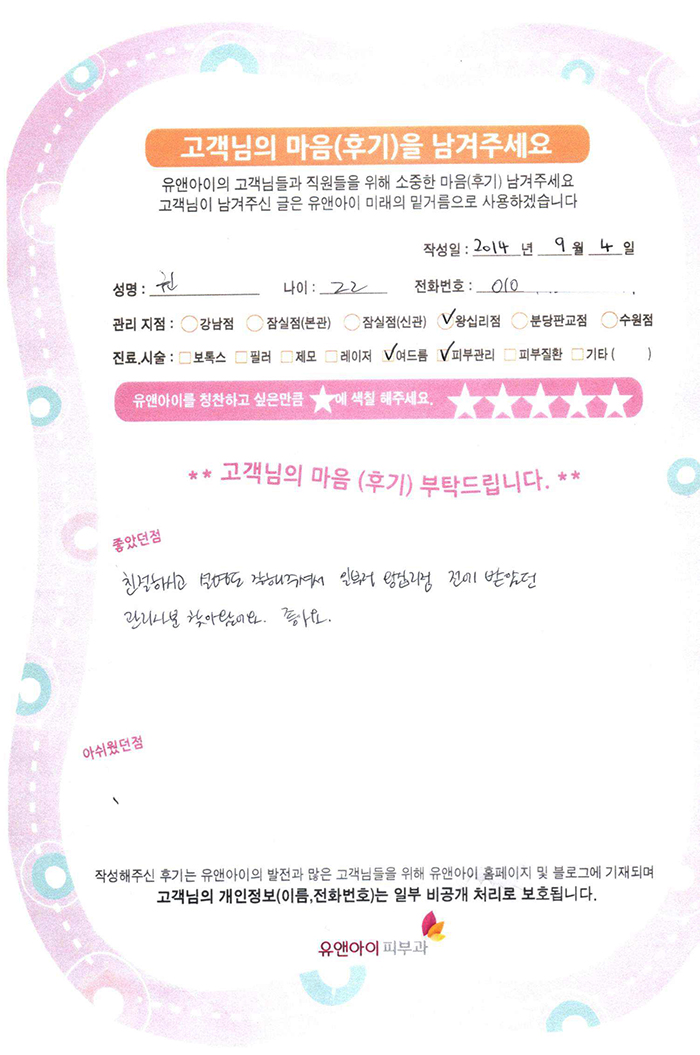 고객님의 마음(후기)을 남겨주세요
유앤아이의 고객님들과 직원들을 위해 소중한 마음(후기) 남겨주세요
고객님이 남겨주신 글은 유앤아이 미래의 밑거름으로 사용하겠습니다
작성일 : 2014 년 9 월 4 일
성명 : 권 나이 : 22 전화번호 : 010
관리 지점 : 강남점 잠실점(본관) 잠실점(신관) ✓왕십리점 분당판교점 수원점
진료.시술 : 보톡스 필러 제모 레이저 ✓여드름 ✓피부관리 피부질환 기타 ( )
유앤아이를 칭찬하고 싶은만큼 ★에 색칠 해주세요. ★★★★★
** 고객님의 마음 (후기) 부탁드립니다. **
좋았던점
친절하시고 설명도 잘해주셔서 일부러 왕십리점 전에 받았던
관리사분 찾아왔어요. 좋아요.
아쉬웠던점
작성해주신 후기는 유앤아이의 발전과 많은 고객님들을 위해 유앤아이 홈페이지 및 블로그에 기재되며
고객님의 개인정보(이름,전화번호)는 일부 비공개 처리로 보호됩니다.
유앤아이 피부과